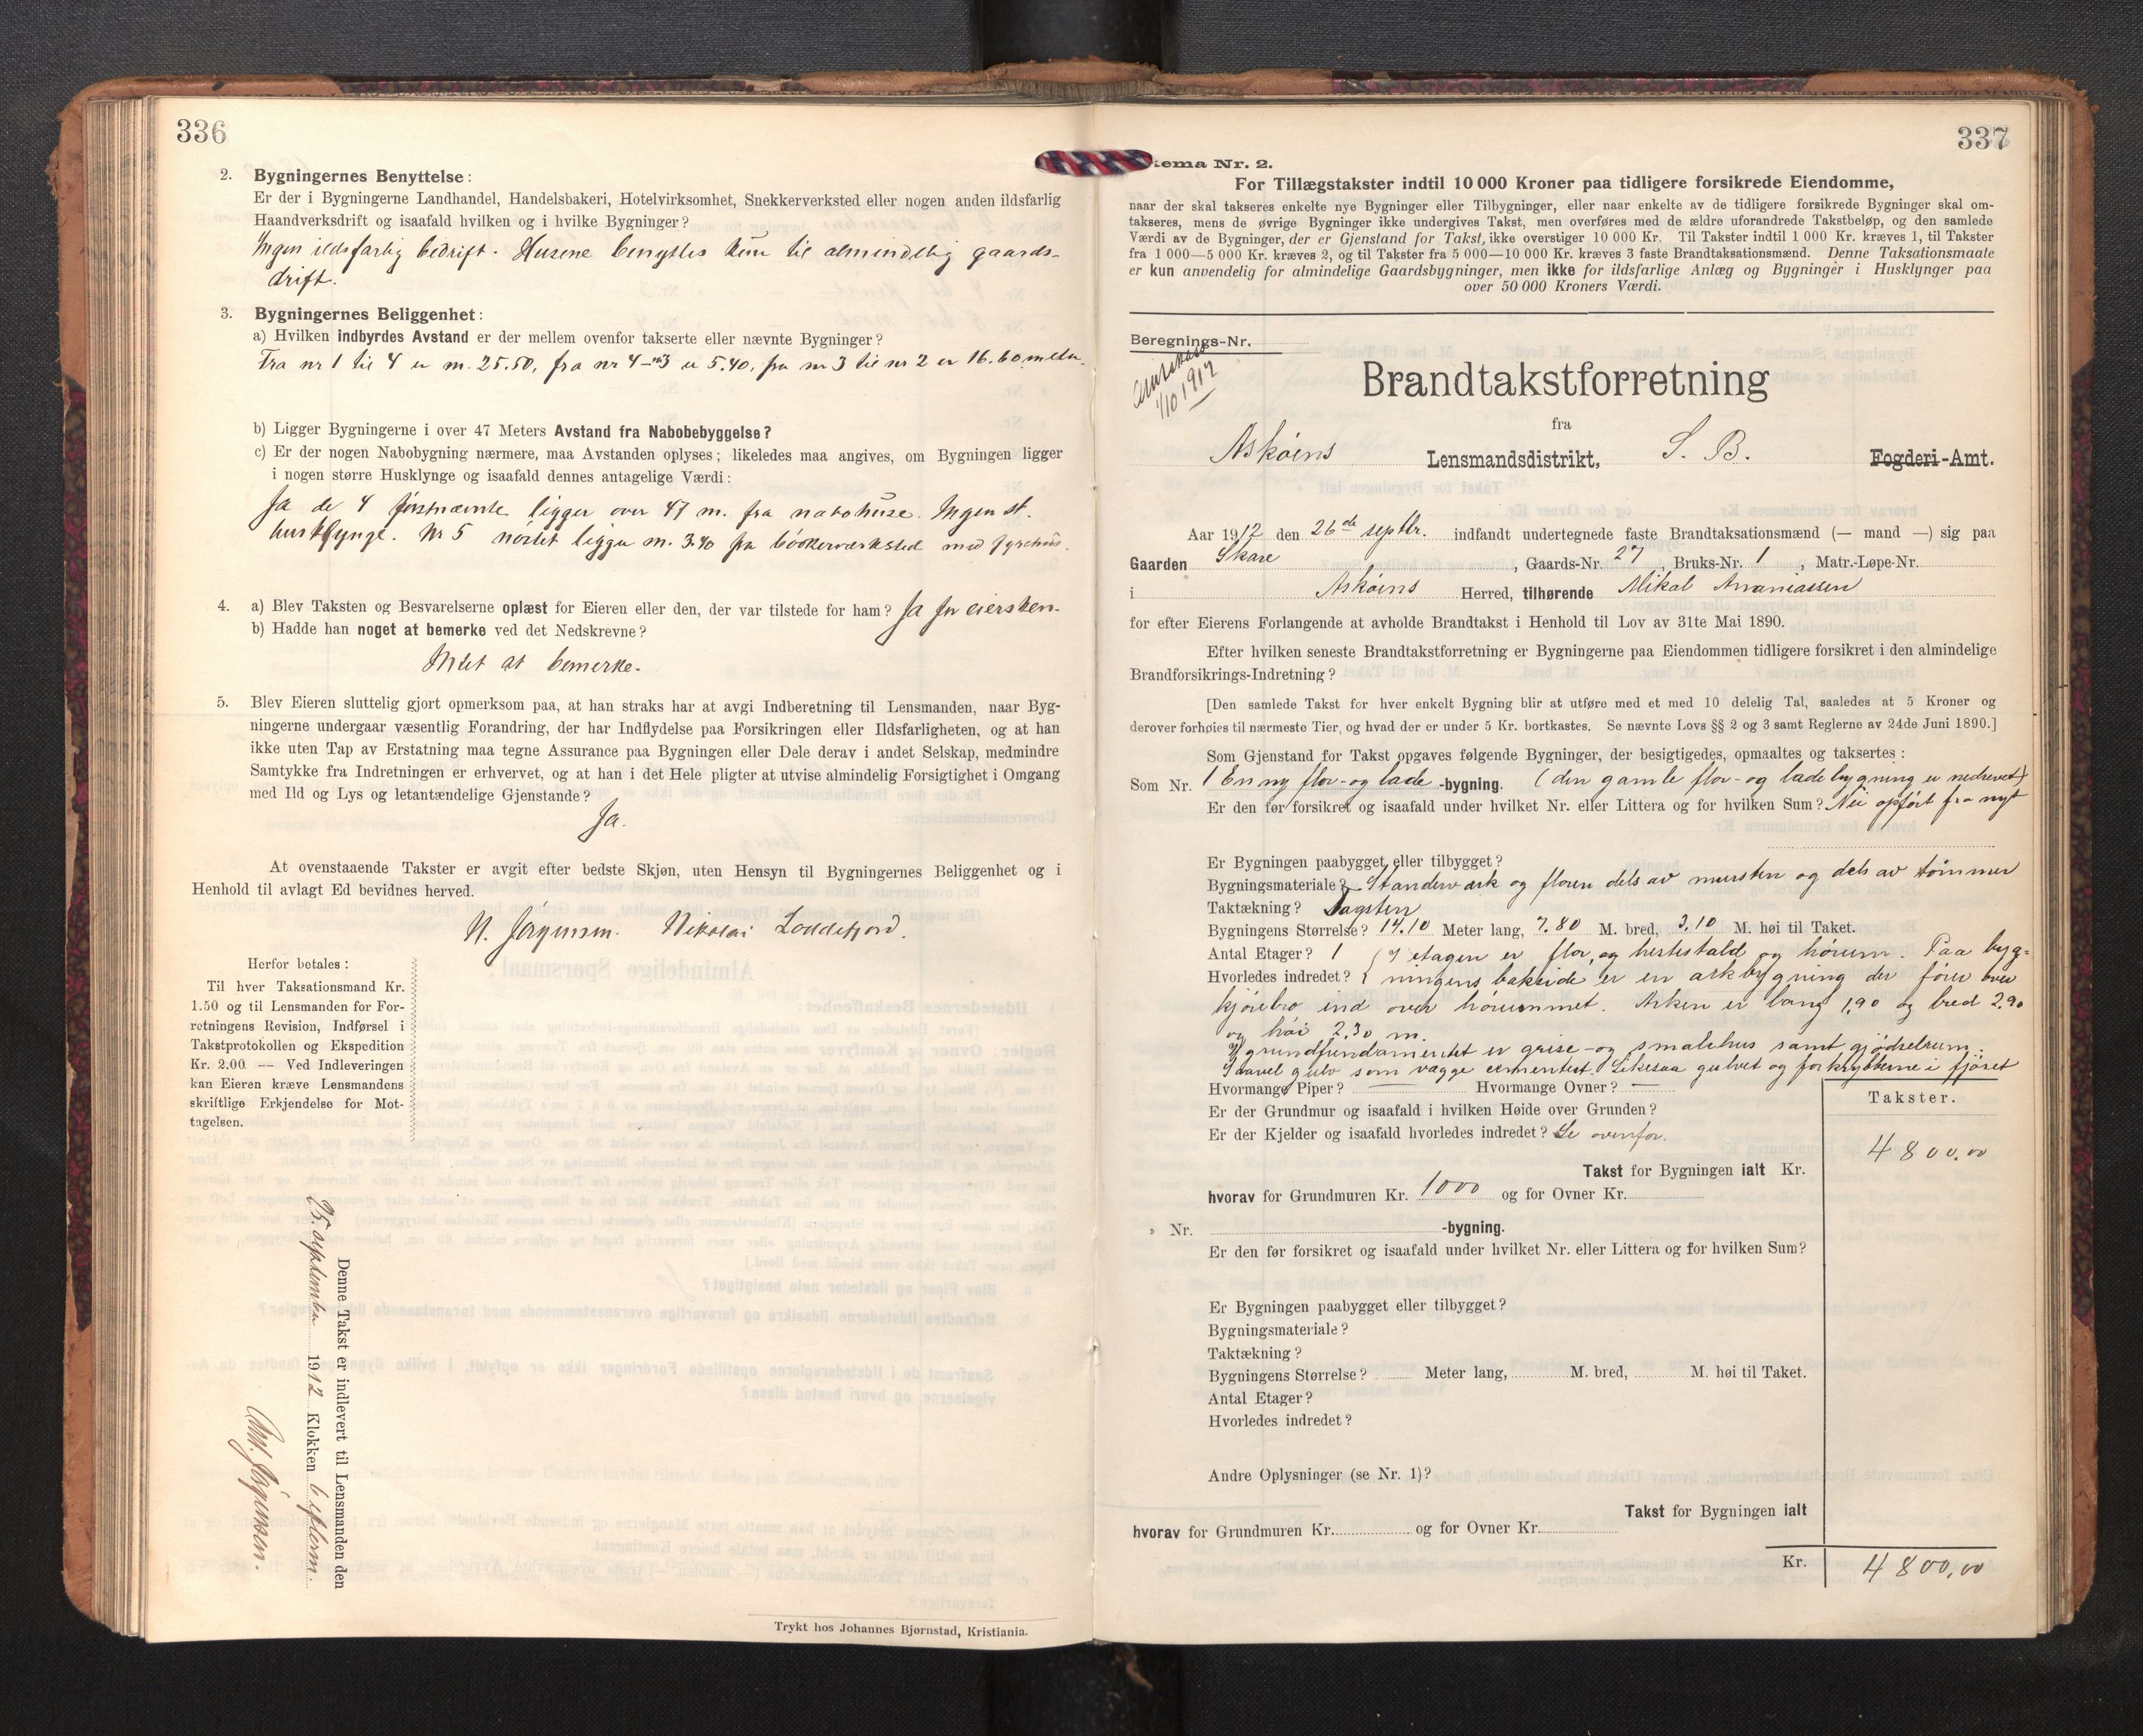 336
2. Bygningernes Benyttelse:
Er der i Bygningerne Landhandel, Handelsbakeri, Hotelvirksomhet, Snekkerverksted eller nogen anden ildsfarlig
Haandverksdrift og isaafald hvilken og i hvilke Bygninger?
Ingen ildsfarlig bedrift. Husene benyttes kun til almindelig gaards-
drift.
3. Bygningernes Beliggenhet:
a) Hvilken indbyrdes Avstand er der mellem ovenfor takserte eller nævnte Bygninger?
Fra nr 1 til 4 er m. 25.50, fra nr 4 - nr 3 er 5.40, fra nr 3 til nr 2 er 16.60 meter.
b) Ligger Bygningerne i over 47 Meters Avstand fra Nabobebyggelse?
c) Er der nogen Nabobygning nærmere, maa Avstanden oplyses; likeledes maa angives, om Bygningen ligger
i nogen større Husklynge og isaafald dennes antagelige Værdi:
Ja de 4 førstnævnte ligger over 47 m. fra nabohuse. Ingen st.
husklynge. Nr 5 nöstet ligger m. 3.40 fra bökerverksted med fyrehus.
4. a) Blev Taksten og Besvarelserne oplæst for Eieren eller den, der var tilstede for ham? Ja for eiersken.
b) Hadde han noget at bemerke ved det Nedskrevne?
Intet at bemerke.
5. Blev Eieren sluttelig gjort opmerksom paa, at han straks har at avgi Indberetning til Lensmanden, naar Byg-
ningerne undergaar væsentlig Forandring, der har Indflydelse paa Forsikringen eller Ildsfarligheten, og at han
ikke uten Tap av Erstatning maa tegne Assurance paa Bygningen eller Dele derav i andet Selskap, medmindre
Samtykke fra Indretningen er erhvervet, og at han i det Hele pligter at utvise almindelig Forsigtighet i Omgang
med Ild og Lys og letantændelige Gjenstande?
Ja.
At ovenstaaende Takster er avgit efter bedste Skjøn, uten Hensyn til Bygningernes Beliggenhet og i
Henhold til avlagt Ed bevidnes herved.
N. Jörgensen. Nikolai Loddefjord.
Herfor betales:
Til hver Taksationsmand Kr.
1.50 og til Lensmanden for For-
retningens Revision, Indførsel i
Takstprotokollen og Ekspedition
Kr. 2.00. — Ved Indleveringen
kan Eieren kræve Lensmandens
skriftlige Erkjendelse for Mot-
tagelsen.
Denne Takst er indlevert til Lensmanden den
25. september 1912 Klokken 6 efterm.
Jörgensen.
Trykt hos Johannes Bjørnstad, Kristiania.
337
kema Nr. 2.
For Tillægstakster indtil 10 000 Kroner paa tidligere forsikrede Eiendomme,
naar der skal takseres enkelte nye Bygninger eller Tilbygninger, eller naar enkelte av de tidligere forsikrede Bygninger skal om-
takseres, mens de øvrige Bygninger ikke undergives Takst, men overføres med de ældre uforandrede Takstbeløp, og den samlede
Værdi av de Bygninger, der er Gjenstand for Takst, ikke overstiger 10 000 Kr. Til Takster indtil 1 000 Kr. kræves 1, til Takster
fra 1 000—5 000 Kr. kræves 2, og til Takster fra 5 000—10 000 Kr. kræves 3 faste Brandtaksationsmænd. Denne Taksationsmaate
er kun anvendelig for almindelige Gaardsbygninger, men ikke for ildsfarlige Anlæg og Bygninger i Husklynger paa
over 50 000 Kroners Værdi.
Beregnings-Nr.
1/10 1912
Brandtakstforretning
fra
Askøens Lensmandsdistrikt, S. B. Fogderi-Amt.
Aar 1912 den 26de septbr. indfandt undertegnede faste Brandtaksationsmænd (— mand —) sig paa
Gaarden Skare, Gaards-Nr. 27, Bruks-Nr. 1, Matr.-Løpe-Nr.
i Askøens Herred, tilhørende Mikal Ananiassen
for efter Eierens Forlangende at avholde Brandtakst i Henhold til Lov av 31te Mai 1890.
Efter hvilken seneste Brandtakstforretning er Bygningerne paa Eiendommen tidligere forsikret i den almindelige
Brandforsikrings-Indretning?
[Den samlede Takst for hver enkelt Bygning blir at utføre med et med 10 delelig Tal, saaledes at 5 Kroner og
derover forhøies til nærmeste Tier, og hvad der er under 5 Kr. bortkastes. Se nævnte Lovs §§ 2 og 3 samt Reglerne av 24de Juni 1890.]
Som Gjenstand for Takst opgaves følgende Bygninger, der besigtigedes, opmaaltes og taksertes:
Som Nr. 1 En ny flor- og lade-bygning. (den gamle flor- og ladebygning er nedrevet)
Er den før forsikret og isaafald under hvilket Nr. eller Littera og for hvilken Sum? Nei opført fra nyt
Er Bygningen paabygget eller tilbygget?
Bygningsmateriale? Standerværk og floren dels av mursten og dels av tömmer
Taktækning? Tagsten
Bygningens Størrelse? 14.10 Meter lang, 7.80 M. bred, 3.10 M. høi til Taket.
Antal Etager? 1 I etagen er flor, og hestestald og hörum. Paa byg-
Hvorledes indredet? ningens bakside er en arkbygning der förer over
kjörebro ind over hörummet. Arken er lang 1,90 og bred 2.90
og höi 2.30 m.
I grundfundamentet er grise- og smalehus samt gjödselrum.
Saavel gulv som vægge cementert. Likesaa gulvet og forkrybberne i fjöset
Hvormange Piper? — Hvormange Ovner? —
Er der Grundmur og isaafald i hvilken Høide over Grunden?
Er der Kjelder og isaafald hvorledes indredet? Se ovenfor.
Takster.
Takst for Bygningen ialt Kr. 4800,00
hvorav for Grundmuren Kr. 1000 og for Ovner Kr.
» Nr. -bygning.
Er den før forsikret og isaafald under hvilket Nr. eller Littera og for hvilken Sum?
Er Bygningen paabygget eller tilbygget?
Bygningsmateriale?
Taktækning?
Bygningens Størrelse? Meter lang, M. bred, M. høi til Taket.
Antal Etager?
Hvorledes indredet?
Andre Oplysninger (se Nr. 1)?
Takst for Bygningen ialt
hvorav for Grundmuren Kr. og for Ovner Kr.
Kr. 4800,00